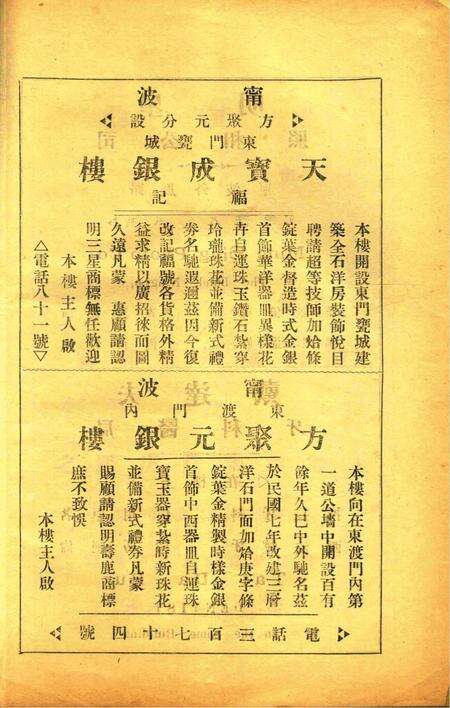 甯波
方聚元分設
東門甕城
天寶成銀樓
福記
本樓開設東門甕城建
築全石洋房裝飾悅目
聘請超等技師加焓條
錠葉金督造時式金銀
首飾華洋器皿異樣花
卉自運珠玉鑽石紮穿
玲瓏珠花並備新式禮
券名馳遐邇茲因今復
改記福號各貨格外精
益求精以廣招徠而圖
久遠凡蒙　惠顧請認
明三星商標無任歡迎
本樓主人啟
△電話八十一號▽
甯波
東渡門內
方聚元銀樓
本樓向在東渡門內第
一道公墻中開設百有
餘年久已中外馳名茲
於民國七年改建三層
洋石門面加焓庚字條
錠葉金精製時樣金銀
首飾中西器皿自運珠
寶玉器穿紮時新珠花
並備新式禮券凡蒙
賜顧請認明壽鹿商標
庶不致悞
本樓主人啟
電話三百七十四號